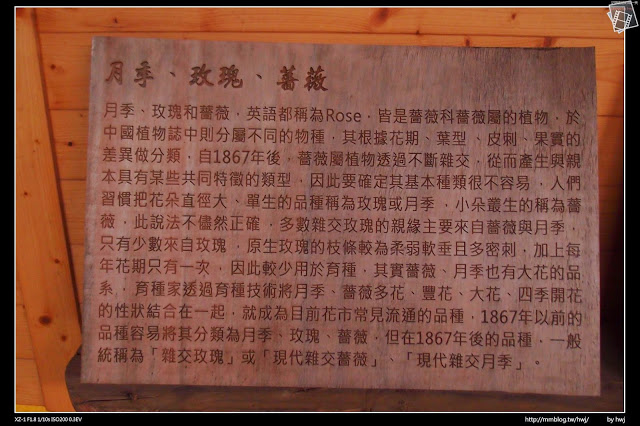 月季、玫瑰、薔薇
月季、玫瑰和薔薇，英語都稱為Rose，皆是薔薇科薔薇屬的植物，於
中國植物誌中則分屬不同的物種，其根據花期、葉型、皮刺、果實的
差異做分類，自1867年後，薔薇屬植物透過不斷雜交，從而產生與親
本具有某些共同特徵的類型，因此要確定其基本種類很不容易，人們
習慣把花朵直徑大、單生的品種稱為玫瑰或月季，小朵叢生的稱為薔
薇，此說法不儘然正確，多數雜交玫瑰的親緣主要來自薔薇與月季，
只有少數來自玫瑰，原生玫瑰的枝條較為柔弱軟垂且多密刺，加上每
年花期只有一次，因此較少用於育種，其實薔薇、月季也有大花的品
系，育種家透過育種技術將月季、薔薇多花、豐花、大花、四季開花
的性狀結合在一起，就成為目前花市常見流通的品種，1867年以前的
品種容易將其分類為月季、玫瑰、薔薇，但在1867年後的品種，一般
統稱為「雜交玫瑰」或「現代雜交薔薇」、「現代雜交月季」。
XZ-1 F1.8 1/10s ISO200 0.3EV
http://mmblog.tw/hwj/
by hwj